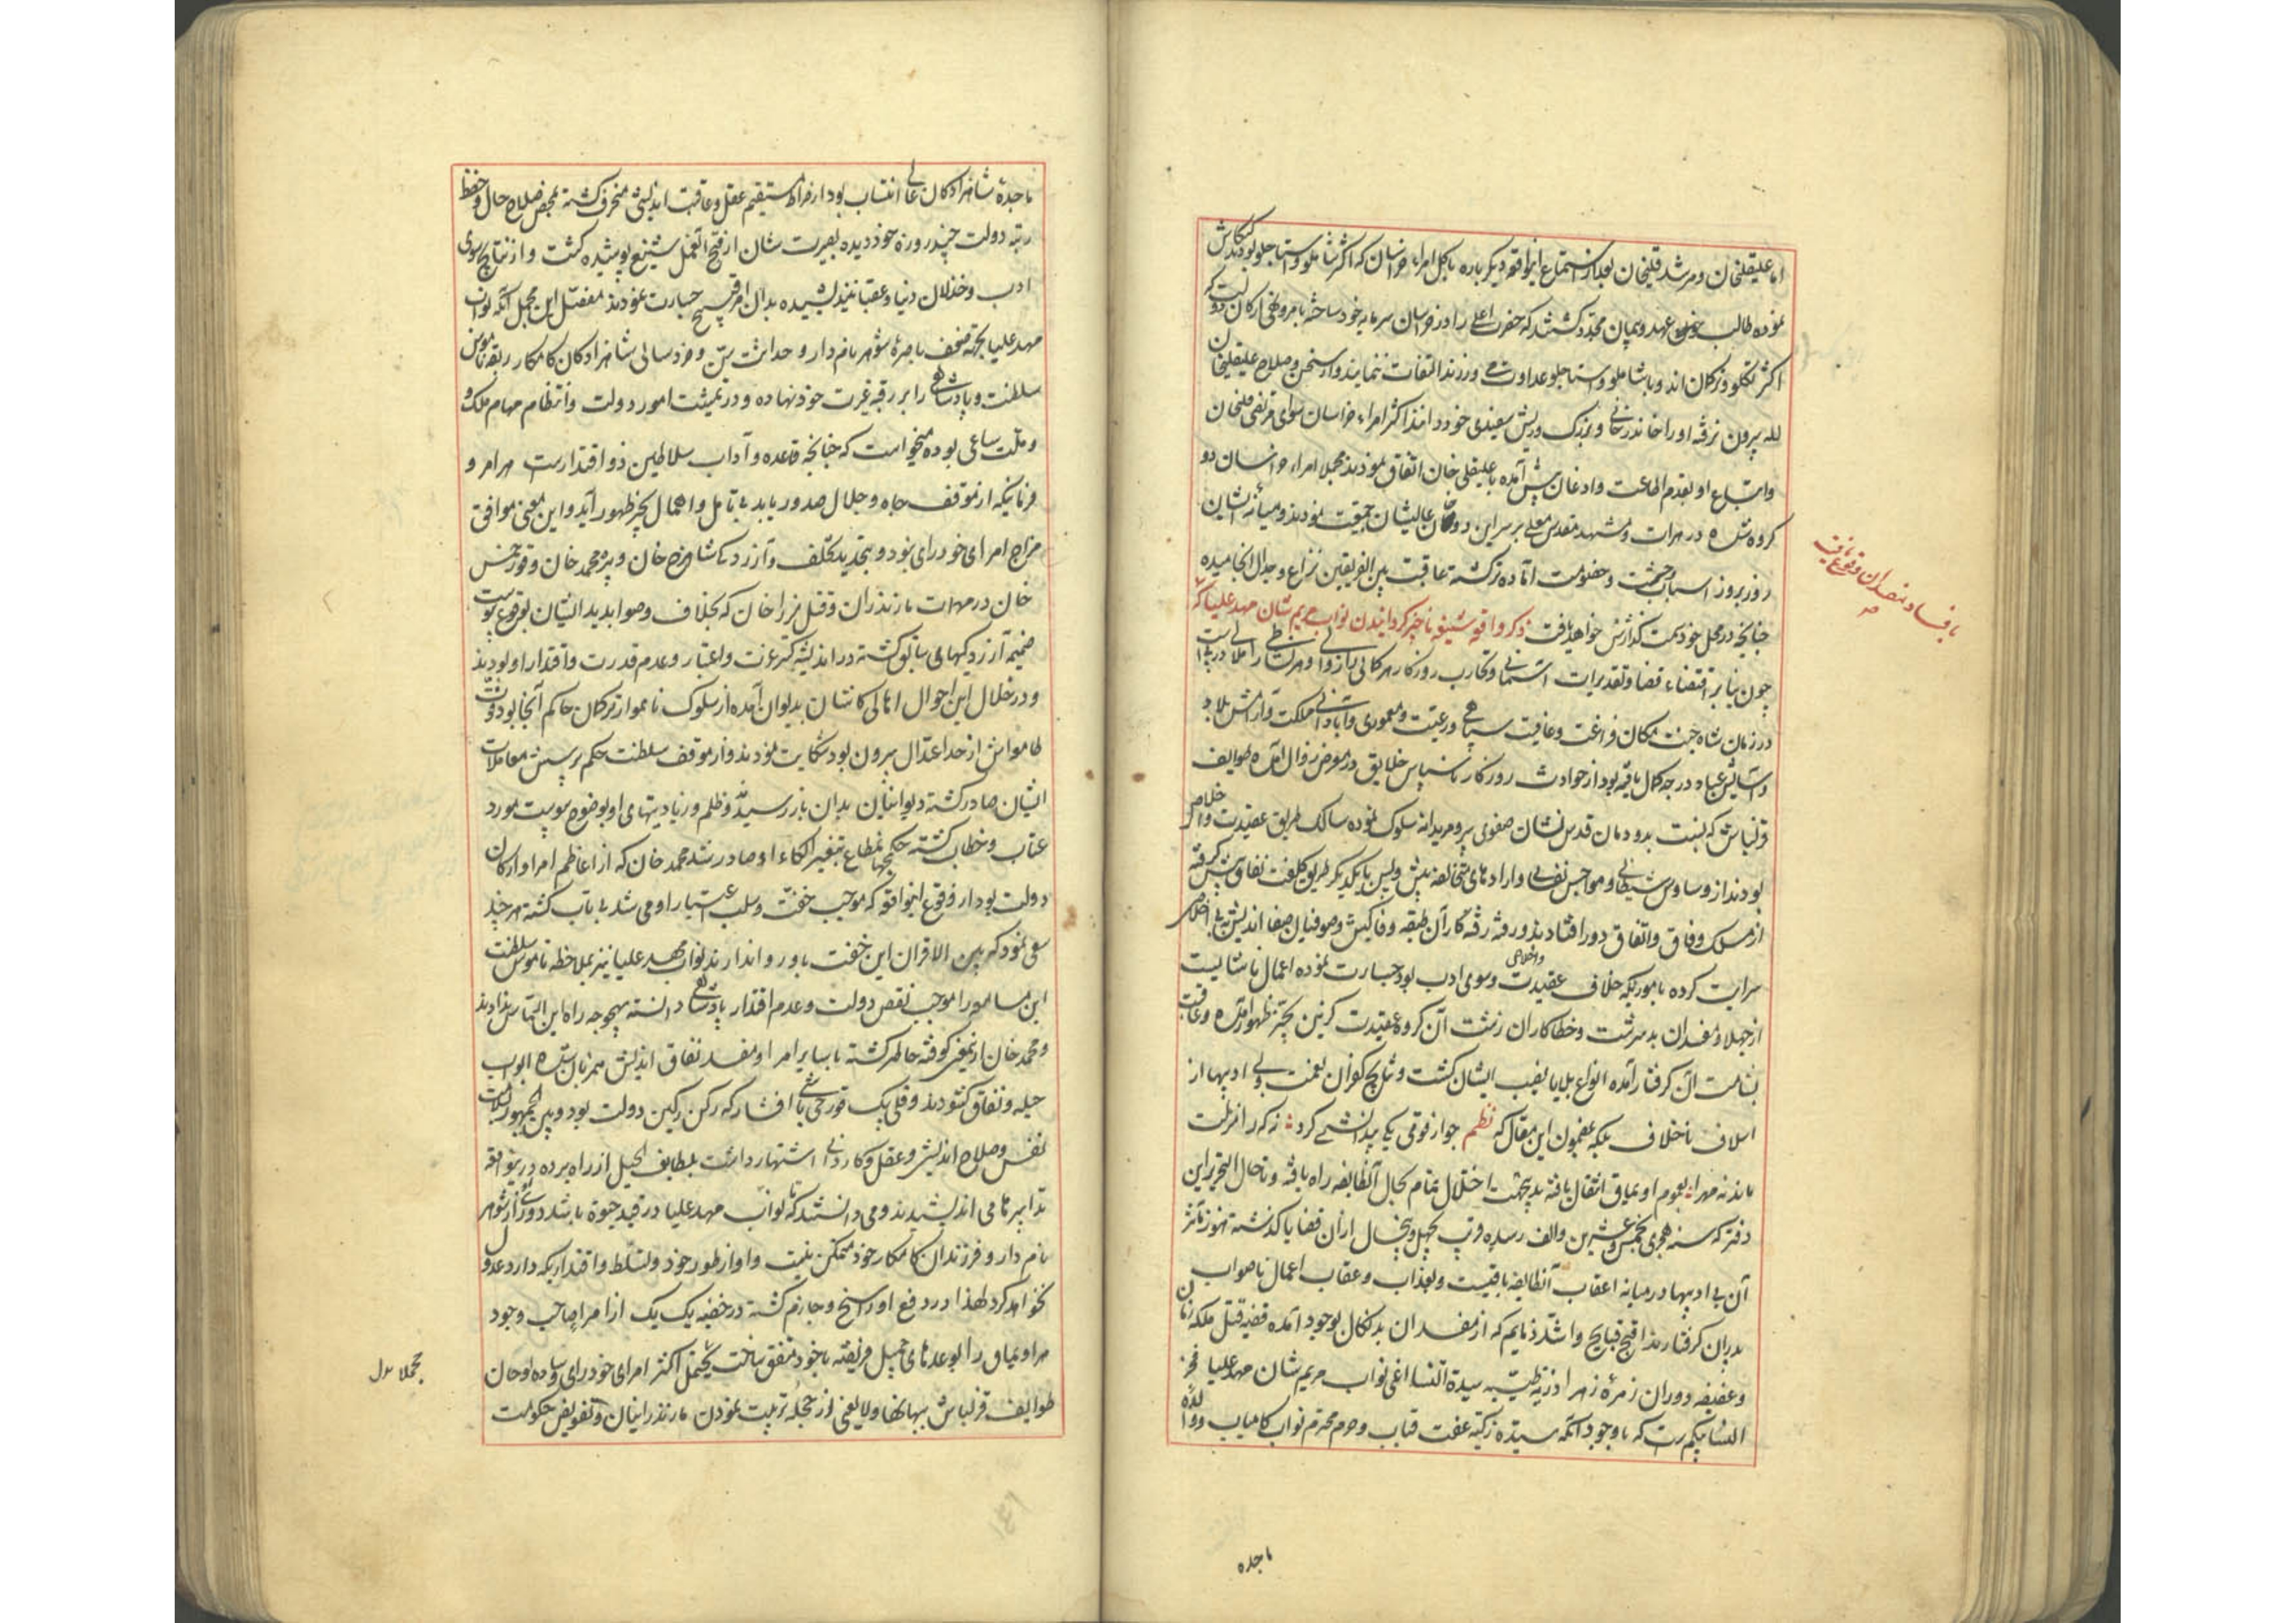 اما علیقلیخان و مرشد قلیخان بعد از استماع اینواقعه دیگر باره با کل امراء خراسان که اکثر شاملو و استاجلو بودند کنکاش
نموده طالب عهد و پیمان مجدد کشتند که حضرت اعلی را در خراسان سرمایه خود ساخته بامر و نهی ارکان دولت که
اکثر تکلو و ترکمان اند و با شاملو و استاجلو عداوت می ورزند التفات ننمایند و از سخن و صلاح علیقلیخان
لله بیرون نرفته او را خاندرخانی و بزرک و ریش سفیدی خود دانند اکثر امراء خراسان سوای مرتضی قلیخان
و اتباع او بقدم اطاعت و اذعان پیش آمده با علیقلی خان اتفاق نمودند مجملا امراء خراسان دو
کروه شده در هرات و مشهد مقدس معلی بر سر این دو خان عالیشان جمعیت نمودند و میانه ایشان
روز بروز اسباب وحشت و خصومت آماده تر کشته عاقبت بین الفریقین نزاع و جدال انجامیده
چنانچه در محل خود سمت کذارش خواهد یافت ذکر واقعه شنیعه ناچیز کردانیدن نواب مریم شان مهد علیا که
بافساد مفسدان وقوع یافت
چون بنا بر اقتضاء قضا و تقدیرات آسمانی و تجارب روزکار هر کمالی را زوالی و هر نشاطی را ملالی در پی است
در زمان شاه جنت مکان فراغت و عافیت سپاهی و رعیت و معموری و آبادانی مملکت و آرامش بلاد
و آسایش عباد درجه کمال یافته بود از حوادث روزکار ناسپاس خلایق در معرض زوال آمده طوایف
قزلباش که نسبت بدودمان قدس نشان صفوی پیر و مریدانه سلوک نموده سالک طریق عقیدت و اخلاص
بودند از وساوس شیطانی و هواجس نفسانی و ارادهای مختلفه پیش و پس با یکدیکر طریق کلفت نفاق پیش کرفته
از مسلک وفاق و اتفاق دور افتادند و رفته رفته کار آن طبقه وفا کیش و صوفیان صفا اندیش به بی اخلاصی
سرایت کرده باموریکه خلاف عقیدت و اخلاص و سوی ادب بود جسارت نموده اعمال ناشایست
از جهلا و مفسدان بد سرشت و خطاکاران زشت آن کروه عقیدت کزین بحیز ظهور آمده و عاقبت
بشامت آن کرفتار آمده انواع بلایا نصیب ایشان کشت و نتایج کفران نعمت و بی ادبیها از
اسلاف باخلاف بلکه بمضمون این مقال که نظم چو از قومی یکی بیدانشی کرد ؛ نه که را منزلت
ماند نه مه را ؛ بعموم اویماق انتقال یافته بدینجهت اختلال تمام بحال آنطایفه راه یافته و تا حال التحریر این
دفتر که سنه هجری بخمس و عشرین و الف رسیده و قریب بچهل و پنجسال از آن قضایا کذشته هنوز تأثر
آن بی ادبیها در میانه اعقاب آنطایفه باقیست و بعذاب و عقاب اعمال ناصواب
پدران کرفتارند اقبح قبایح و اشد ذمایم که از مفسدان بدکمان بوجود آمده قضیه قتل ملکه زمان
و عفیفه دوران زمره زهرا ذریه طیبه سیدة النسا اعنی نواب مریم شان مهد علیا فخر
النسا بیکم است که با وجود آنکه سیده زکیه عفت قباب و حرم محترم نواب کامیاب و والده
ماجده
ماجدهٔ شاهزادکان عالی انتساب بود از صراط مستقیم عقل و عاقبت اندیشی منحرف کشته بمحض صلاح حال و حفظ
رتبه دولت چند روزه خود دیده بصیرت شان از قبح آنعمل شنیع پوشیده کشت و از نتایج سوی
ادب و خذلان دنیا و عقبا نیندیشیده بدان امر قبیح جسارت نمودند مفصل این مجمل آنکه نواب
مهد علیا بجهة ضعف باصرهٔ شوهر نامدار و حداثت سن و خردسالی شاهزادکان کامکار ربقه ناموس
سلطنت و پادشاهی را بر رقبه غیرت خود نهاده و در تمشیت امور دولت و انتظام مهام ملک و
و ملت ساعی بوده میخواست که چنانچه قاعده و آداب سلاطین ذو اقتدارست هر امر و
فرمانیکه از موقف جاه و جلال صدور یابد بی تأمل و اهمال بحیز ظهور آید و این معنی موافق
مزاج امرای خودرای نبود و بتجدید تکلف و آزردکی شاهرخ خان و پیره محمد خان و قورخمس
خان در مهمات مازندران و قتل میرزا خان که بخلاف و صوابدید ایشان بوقوع پیوست
ضمیمه آزردکیهای سابق کشته در اندیشه کسر عزت و اعتبار و عدم قدرت و اقتدار او بودند
و در خلال این احوال اهالی کاشان بدیوان آمده از سلوک ناهموار ترکمان حاکم آنجا بود
طاموانش از حد اعتدال بیرون بود شکایت نمودند و از موقف سلطنت حکم بپرسش معاملات
ایشان صادر کشته دیوانیان بدان باز رسیدند و ظلم و زیادتیهای او بوضوح پیوست مورد
عتاب و خطاب کشته حکم جهانمطاع بتغییر الکاء او صادر شد محمد خان که از اعاظم امرا و ارکان
دولت بود از وقوع اینواقعه که موجب خفت و سلب اعتبار او می شد بی تاب کشته هر چند
سعی نمود که بین الاقران این خفت باو روا ندارند نواب مهد علیا نیز بملاحظه ناموس سلطنت
این مسامحه را موجب نقص دولت و عدم اقتدار پادشاهی دانسته بهیچوجه راه این التماس ندادند
و محمد خان از نمعنی کوفته خاطر کشته با سایر امرا و مفسد نفاق اندیش همزبان شده ابواب
حیله و نفاق کشودند و قلی بیک قورچی باشی افشار که رکن رکین دولت بود و بین الجمهور بسلامت
نفس و صلاح اندیشی و عقل و کاردانی اشتهار داشت بلطایف الحیل از راه برده درینواقعه
تدابیر تا می اندیشیدند و می دانستند که تا نواب مهد علیا در قید حیوة باشد دوری از شوهر
نامدار و فرزندان کامکار خود ممکن نیست و او از طور خود و تسلط و اقتداریکه دارد عدول
نخواهد کرد لهذا در دفع او راسخ و جازم کشته در خفیه یک یک از امرا صاحب وجود
هر اویماق را بوعدهای جمیل فریفته با خود متفق ساخت اکثر امرای خودرای ساده لوحان
طوایف قزلباش ببهانها و لا یعنی از جمله تربیت نمودن مازندرانیان و تفویض حکومت